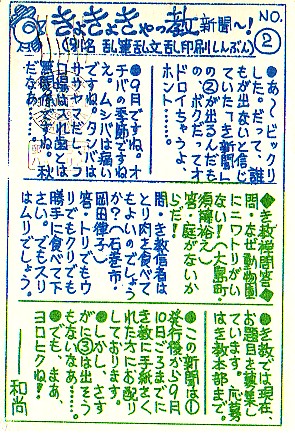 きょきょきゃっ教新聞〜!
NO.②
(別名 乱筆乱文乱印刷しんぶん)
●あ〜ビックリ
した。だって、誰
もが出ないと信じ
ていたき新聞し
の②が出るんだも
の、ボクだってオ
ドロイちゃうよ、
ホント……。
●9月ですね。オ
チバの季節ですね
え。ムシバは痛い
ですね。タンバは
ササヤマだし、フ
ロ場は入れ歯とは
無関係です。秋
だなあ…。
◆き教禅問答◆
問・なぜ動物園
にニワトリがい
ない!(大島町・
須藤裕え)
答・庭がないか
らだ!
問・き教信者は
とり肉を食べて
もよいのでしょう
か?(石巻市・
岡田律子)
答・トリでもウ
リでもクリでも
勝手に食べて下
さい。でもスリ
はムリでしょう。
●き教では現在、
お題目を募集し
ています。応募
はき教本部まで。
●この新聞は①
発行後から9月
10日ごろまでに
き教に手紙をく
れた方にお配り
しております。
●しかし、さす
がに③は出そう
もないなあ……。
●でも、まあ、
ヨロヒクね!
──和尚